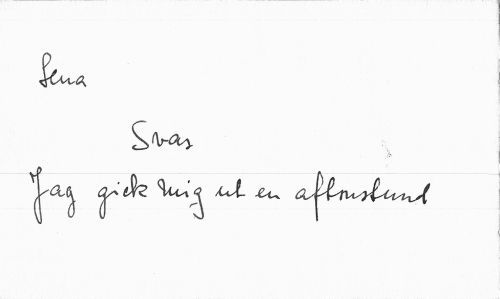 Lena
Svar
Jag gick mig ut en aftonstund